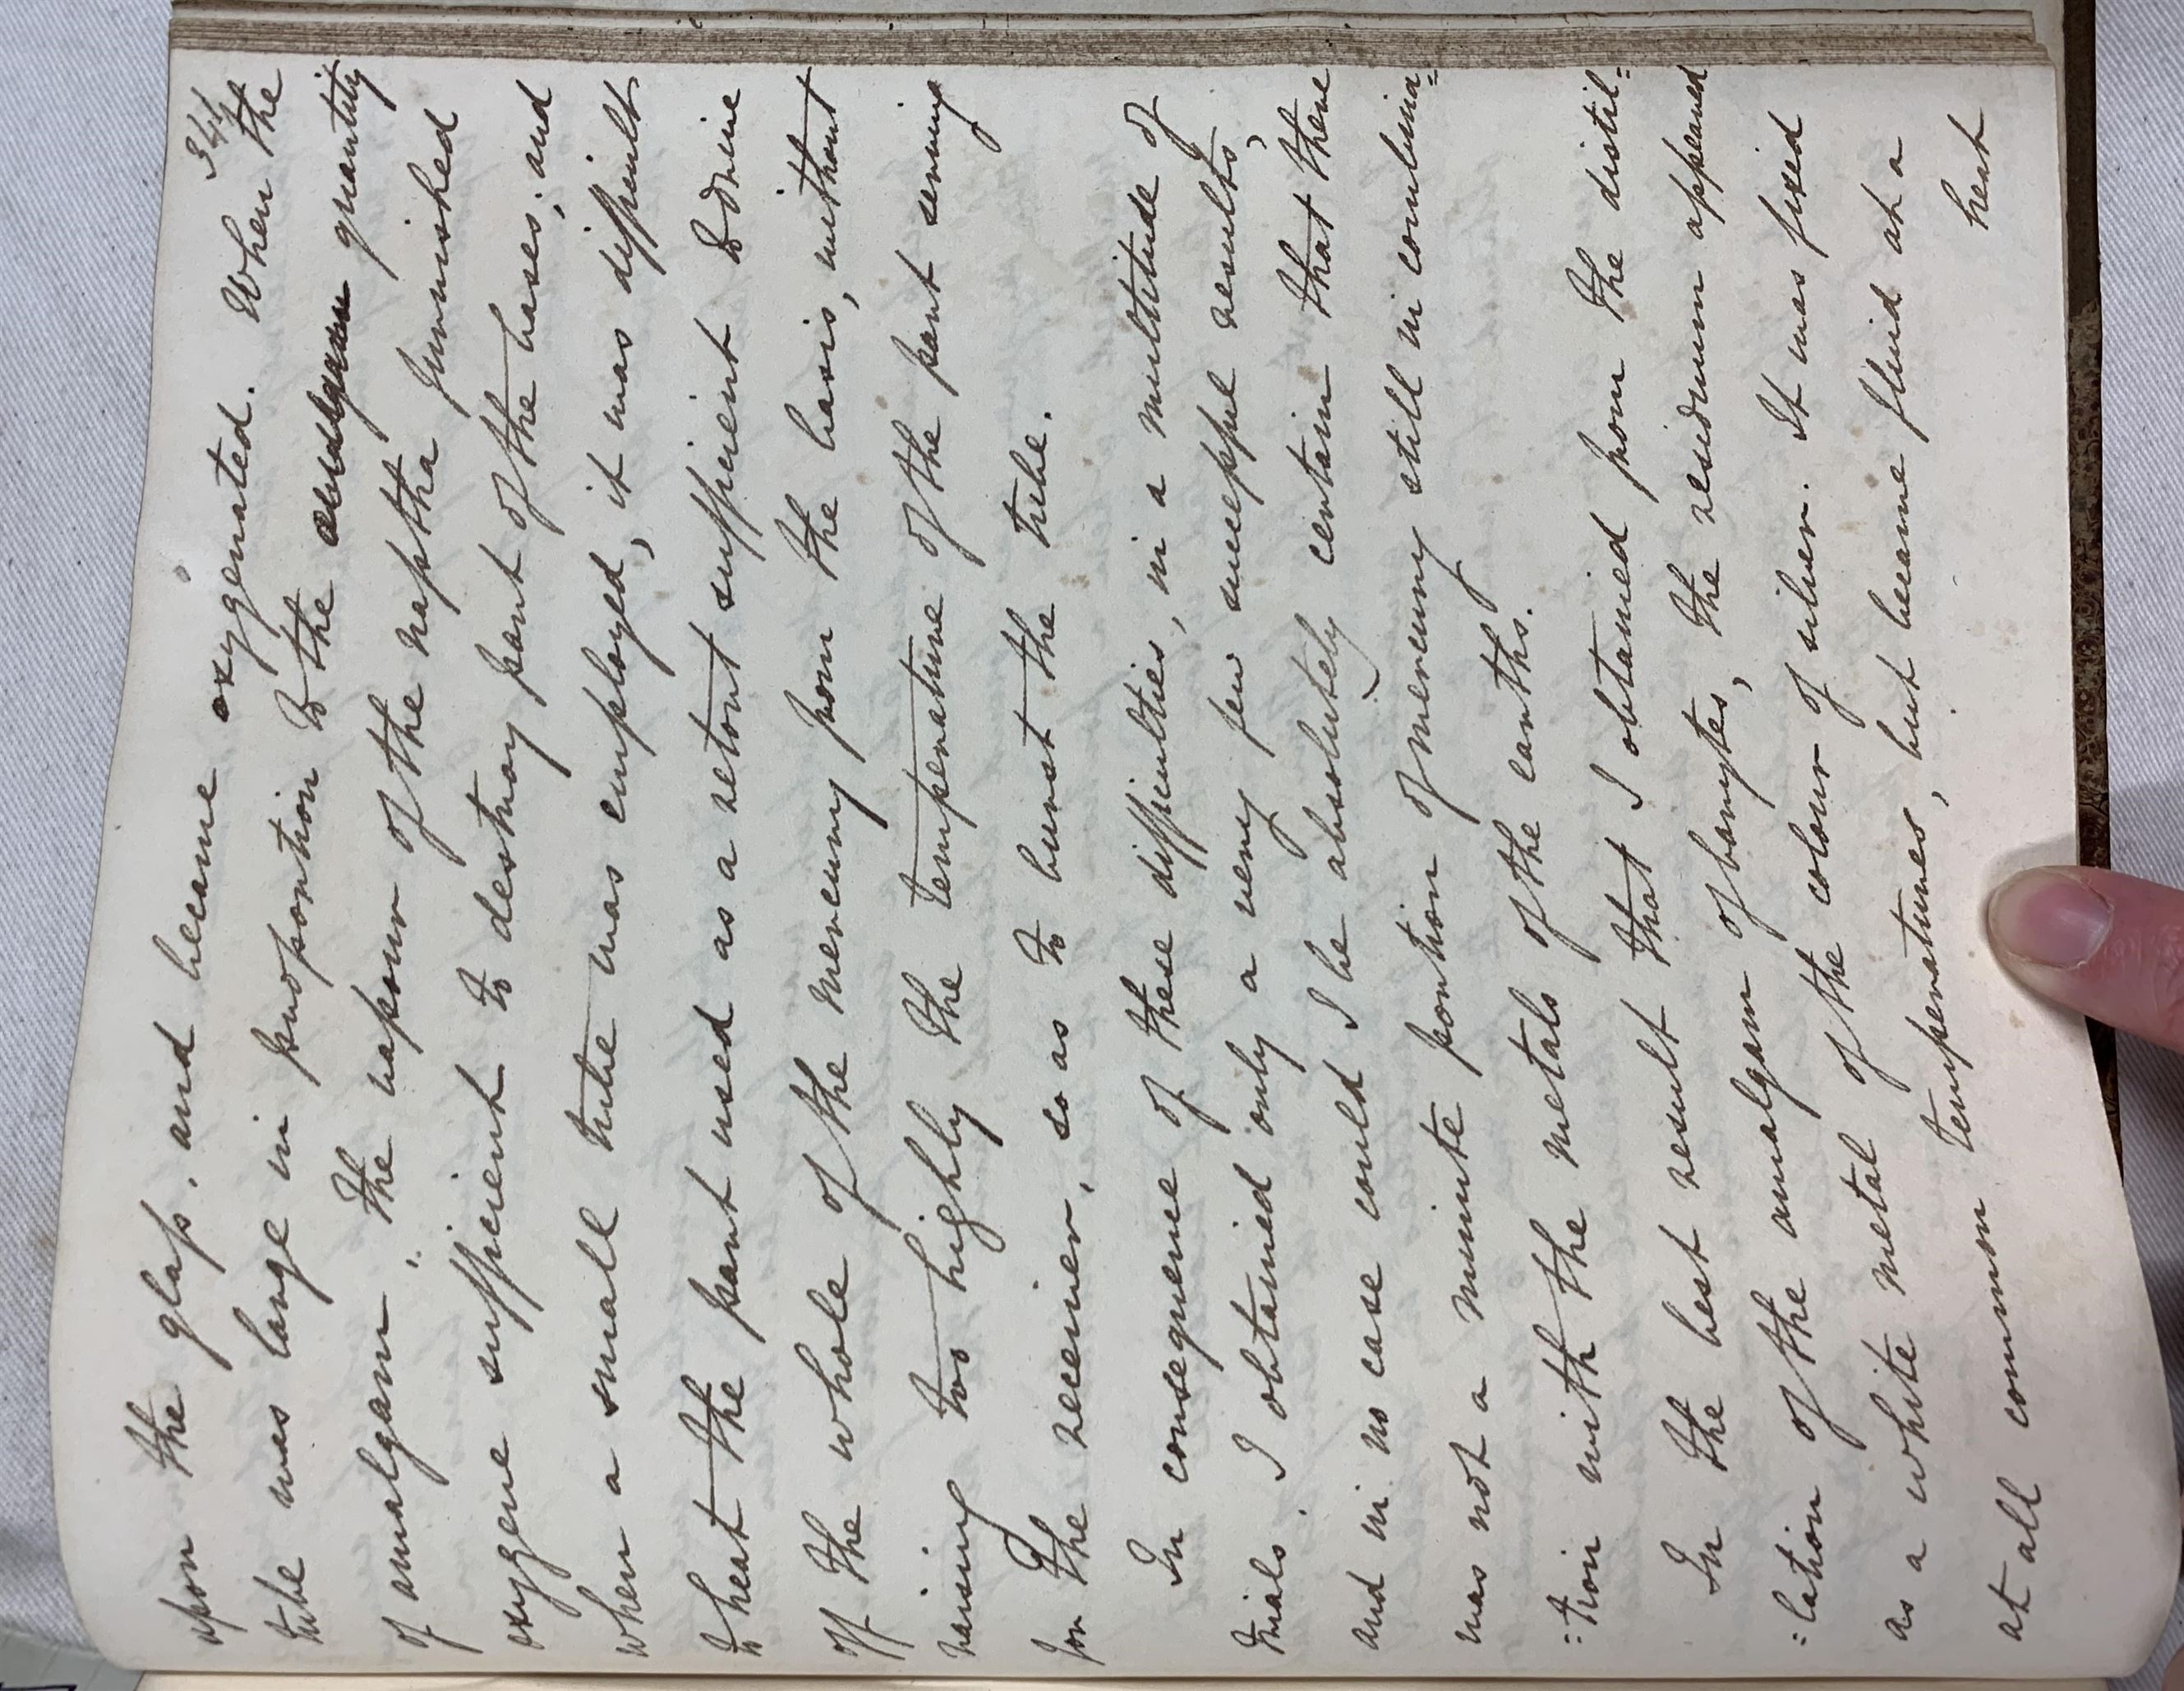 341
upon the glass, and became oxygenated. When the
tube was large in proportion to the amalgam quantity
of amalgam, the vapour of the naptha furnished
oxygene sufficient to destroy part of the bases; and
when a small tube was employed, it was difficult
to heat the part used as a retort sufficient to drive
off the whole of the mercury from the basis, without
raising too highly the temperature of the part serving
for the receiver, so as to burst the tube.
In consequence of these difficulties, in a multitude of
trials, I obtained only a very few successful results,
and in no case could I be absolutely certain that there
was not a minute portion of mercury still in combina=
=tion with the metals of the earths.
In the best result that I obtained from the distil=
=lation of the amalgam of barytes, the residuum appeared
as a white metal of the colour of silver. It was fixed
at all common temperatures, but became fluid at a
heat